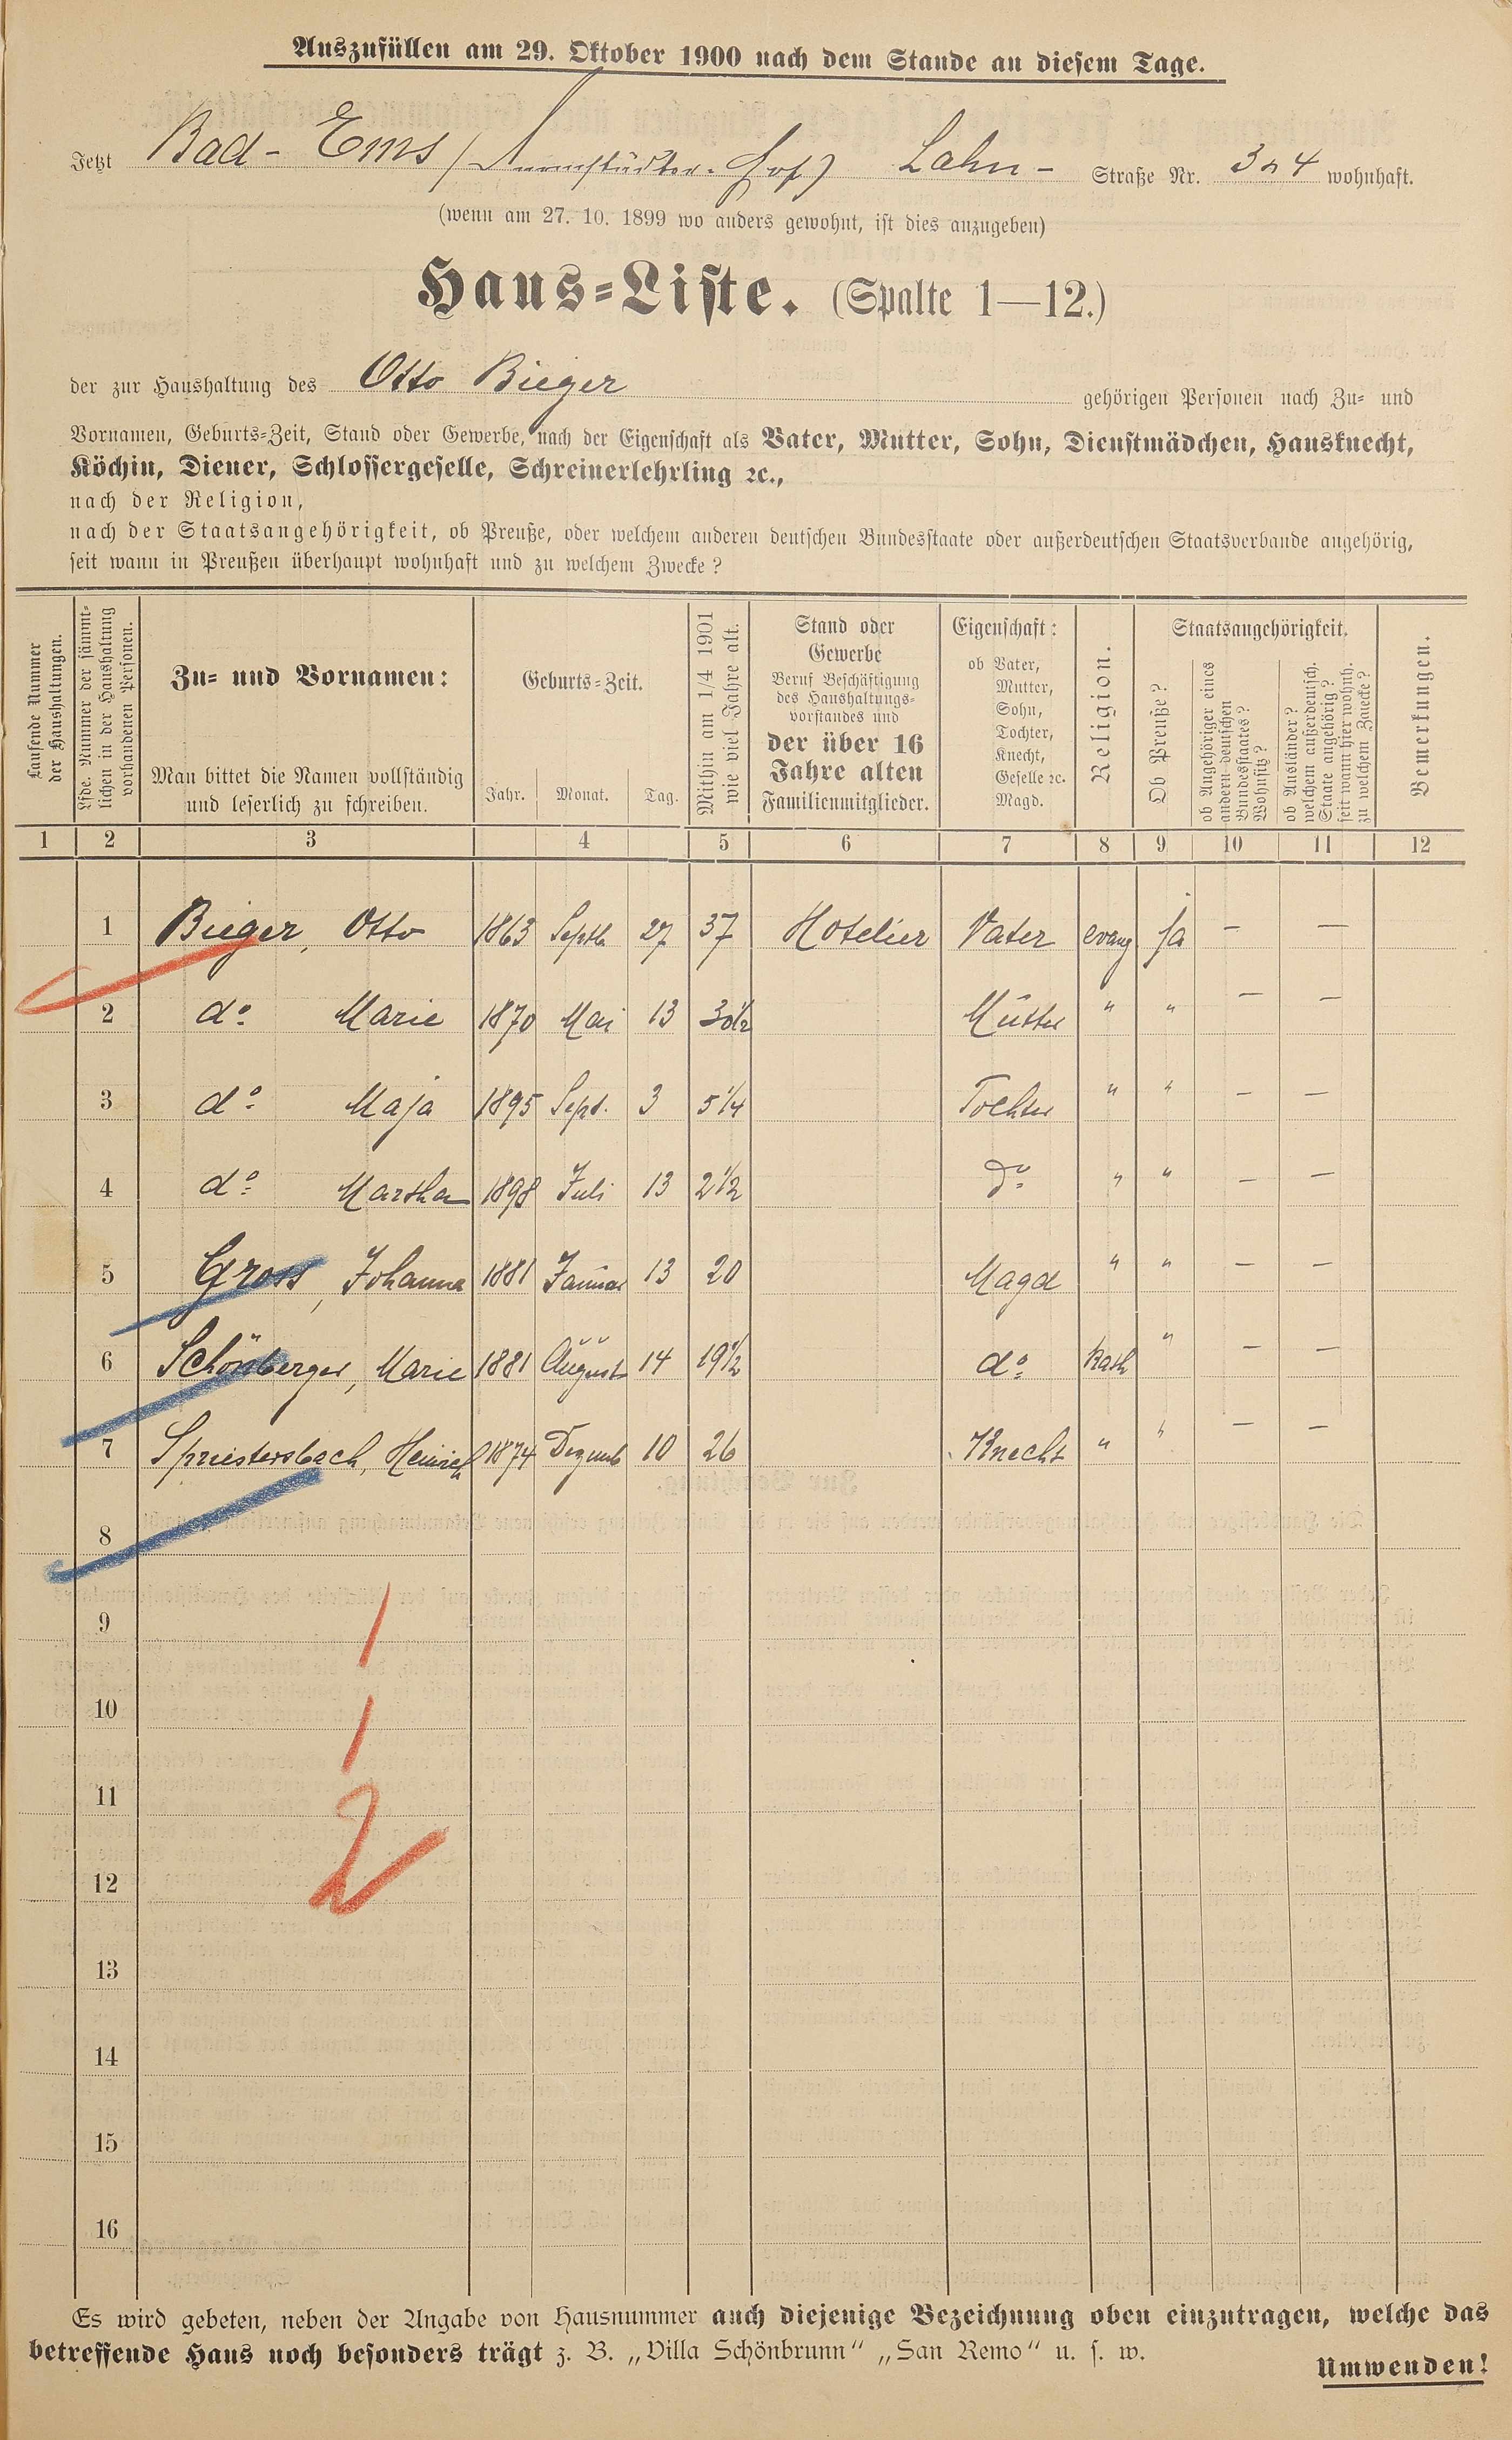 Auszufüllen am 29. Oktober 1900 nach dem Stande an diesem Tage.
Jetzt Bad-Ems (Darmstädter-Hof) Lahn- Straße Nr. 3 u 4 wohnhaft.
(wenn am 27. 10. 1899 wo anders gewohnt, ist dies anzugeben)
Haus-Liste. (Spalte 1—12.)
der zur Haushaltung des Otto Bieger gehörigen Personen nach Zu- und
Vornamen, Geburts-Zeit, Stand oder Gewerbe, nach der Eigenschaft als Vater, Mutter, Sohn, Dienstmädchen, Hausknecht,
Köchin, Diener, Schlossergeselle, Schreinerlehrling ꝛc.,
nach der Religion,
nach der Staatsangehörigkeit, ob Preuße, oder welchem anderen deutschen Bundesstaate oder außerdeutschen Staatsverbande angehörig,
seit wann in Preußen überhaupt wohnhaft und zu welchem Zwecke?
Laufende Nummer
der Haushaltungen.
Lfde. Nummer der sämmt-
lichen in der Haushaltung
vorhandenen Personen.
Zu- und Vornamen:
Man bittet die Namen vollständig
und leserlich zu schreiben.
Geburts-Zeit.
Jahr. Monat. Tag.
Mithin am 1/4 1901
wie viel Jahre alt.
Stand oder
Gewerbe
Beruf Beschäftigung
des Haushaltungs-
vorstandes und
der über 16
Jahre alten
Familienmitglieder.
Eigenschaft:
ob Vater,
Mutter,
Sohn,
Tochter,
Knecht,
Geselle ꝛc.
Magd.
Religion.
Staatsangehörigkeit.
Ob Preuße?
ob Angehöriger eines
andern deutschen
Bundesstaates?
Wohnsitz?
ob Ausländer?
welchem außerdeutsch.
Staate angehörig?
seit wann hier wohnh.
zu welchem Zwecke?
Bemerkungen.
1 2 3 4 5 6 7 8 9 10 11 12
1 Bieger, Otto 1863 Septb 27 37 Hotelier Vater evang ja — —
2 do. Marie 1870 Mai 13 30½ Mutter " " — —
3 do. Maja 1895 Sept. 3 5¼ Tochter " " — —
4 do. Martha 1898 Juli 13 2½ do. " " — —
5 Gross, Johanna 1881 Januar 13 20 Magd " " — —
6 Schönberger, Marie 1881 August 14 19½ do. Kath " — —
7 Spriestersbach, Heinrich 1874 Dezemb 10 26 Knecht " " — —
8
9
1
10
1
11
2
12
13
14
15
16
Es wird gebeten, neben der Angabe von Hausnummer auch diejenige Bezeichnung oben einzutragen, welche das
betreffende Haus noch besonders trägt z. B. „Villa Schönbrunn“ „San Remo“ u. s. w.
Umwenden!